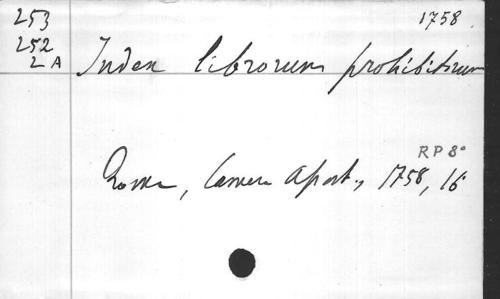 253
1758
252
2 A
Index librorum prohibitorum
RP 8°
Rome, Camera Apost., 1758, 16